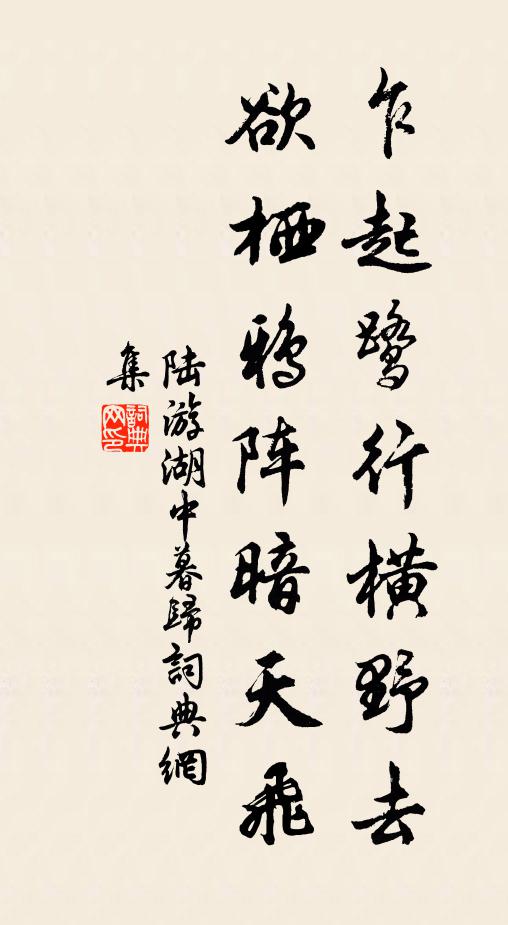 乍起鹭行横野去
欲栖鸦阵暗天飞
陆游湖中暮歸詞典網
集
詞典网印